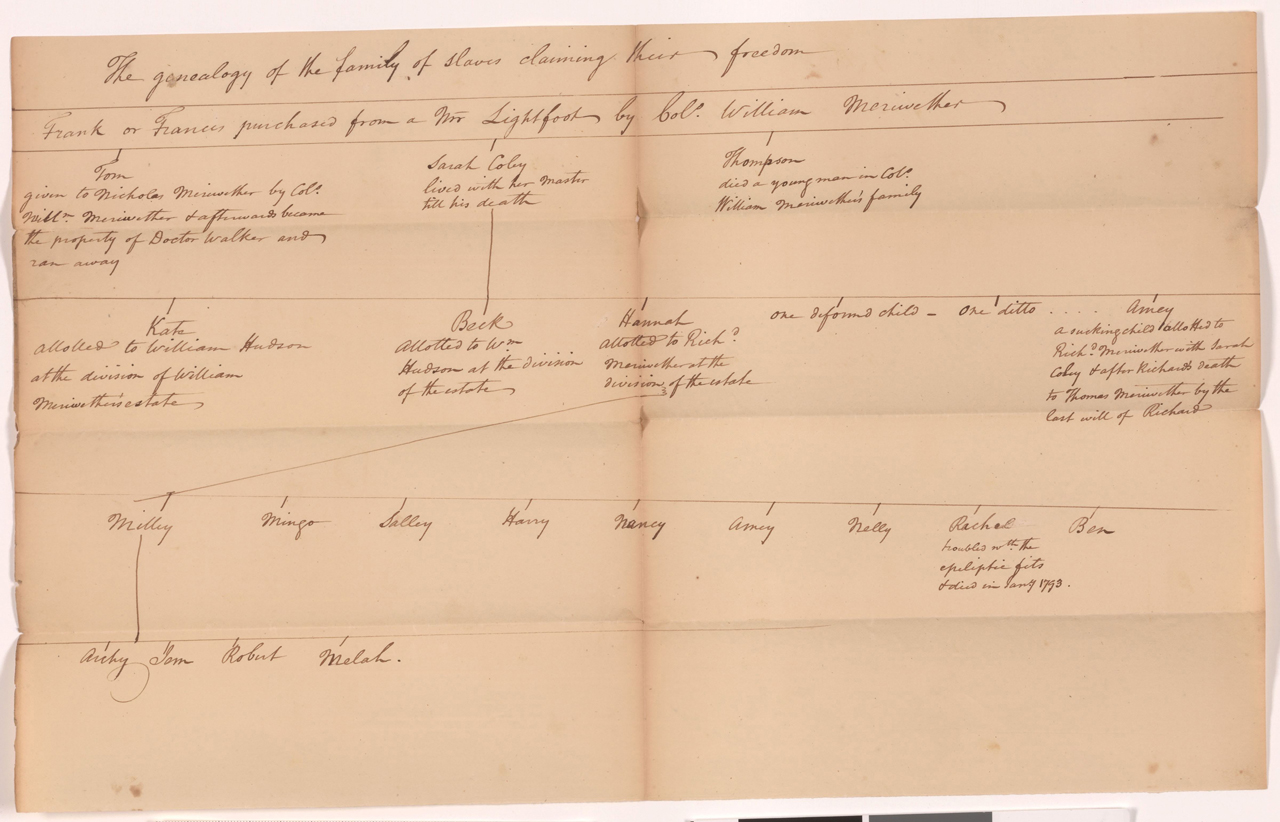 The genealogy of the family of slaves claiming their freedom
Frank or Francis purchased from a Mr Lightfoot by Colo. William Meriwether
Tom
given to Nicholas Meriwether by Colo.
Willm. Meriwether & afterwards became
the property of Doctor Walker and
ran away
Sarah Coley
lived with her Master
till his death
Thompson
died a young man in Colo.
William Meriwether's family
Kate
allotted to William Hudson
at the division of William
Meriwether's estate
Beck
Allotted to Wm
Hudson at the division
of the estate
Hannah
allotted to Richd.
Meriwether at the
division of the estate
one deformed child – one ditto ....
Amey
a sucking child allotted to
Richd. Meriwether with Sarah
Coley & after Richards death
to Thomas Meriwether by the
last will of Richard
Milley
Mingo
Salley
Harry
Nancy
Amey
Nelly
Rachel
troubled wth. the
epileptic fits
& died in Jany 1793.
Ben
Archy Jem Robert Melah.